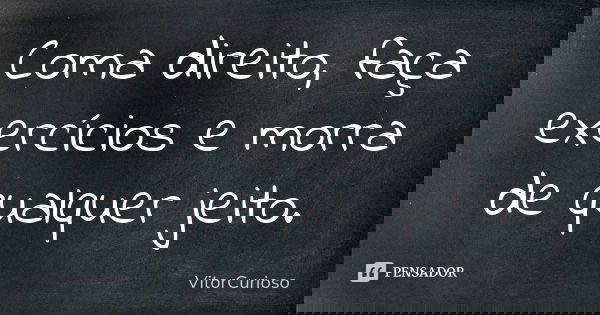 Coma direito, faça
exercícios e morra
de qualquer jeito.
PENSADOR
VitorCurioso